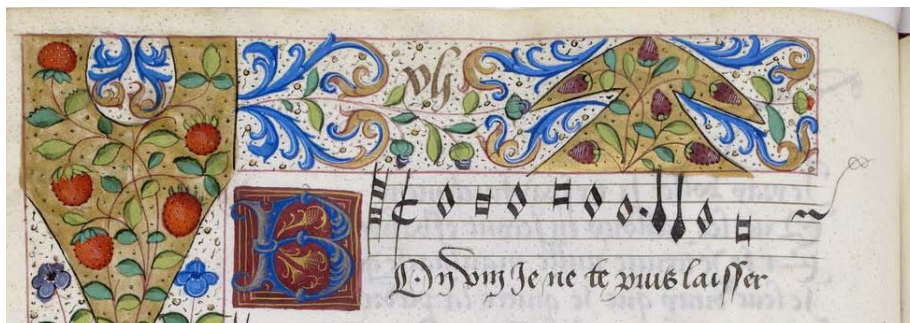 BOn vin Je ne te puis laisser